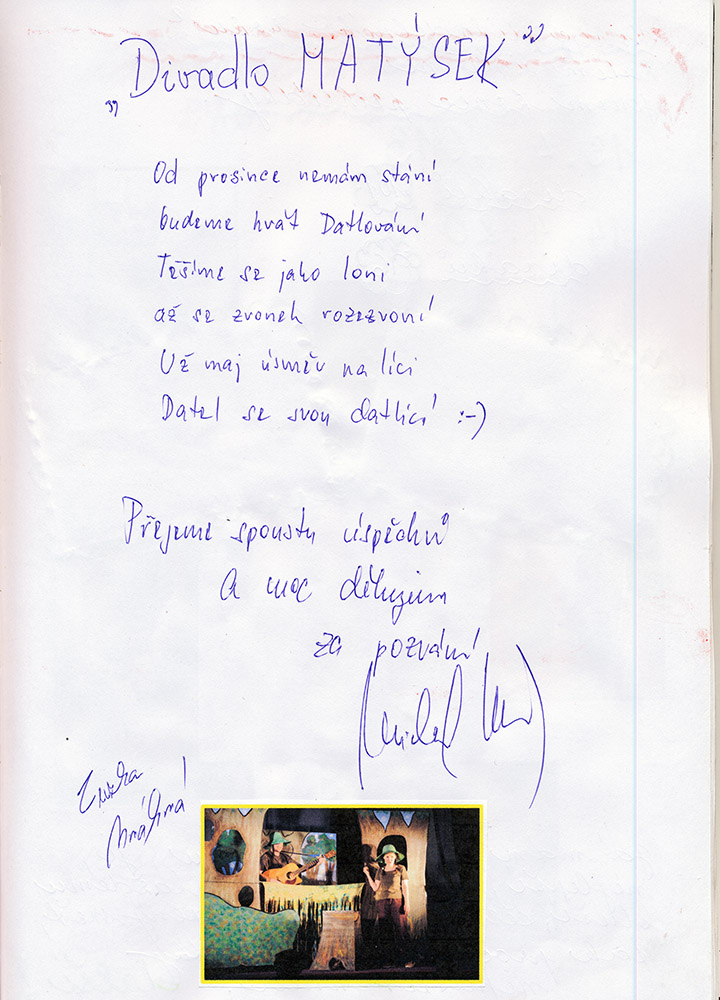 „Divadlo MATÝSEK"
Od prosince nemám stání
budeme hrát Datlování
Těšíme se jako loni
až se zvonek rozezvoní
Už maj úsměv na líci
Datel se svou datlicí :-)
Přejeme spoustu úspěchů
A moc děkujem
za pozvání